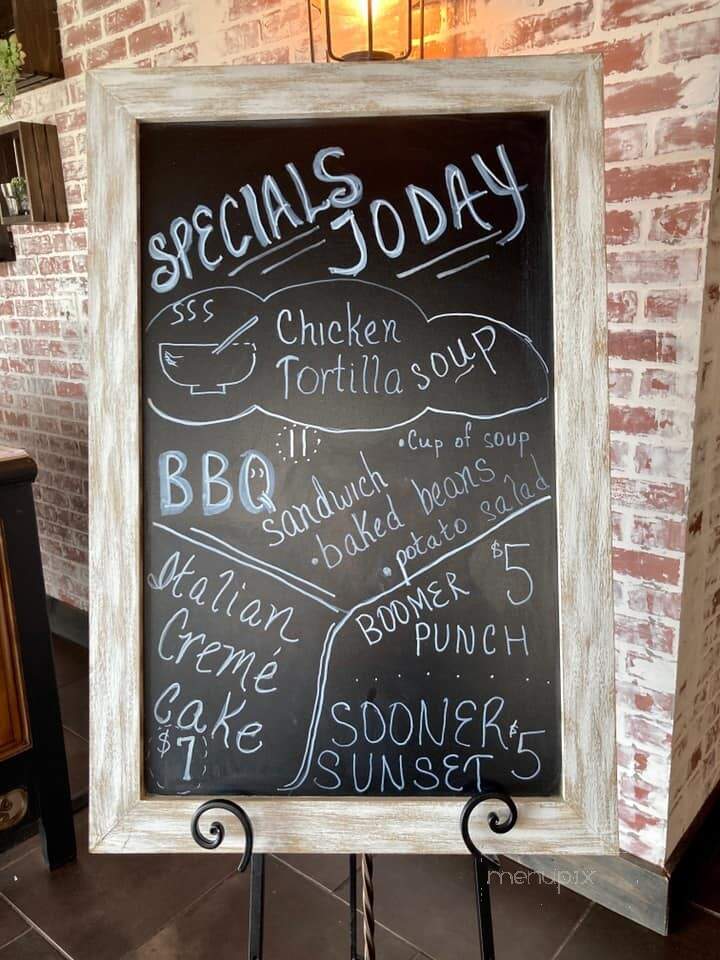 SPECIALS TODAY
SSS
Chicken
Tortilla soup
BBQ 11
sandwich
•Cup of soup
•baked beans
•potato salad
Italian
Cremé
Cake
$7
BOOMER $5
PUNCH
SOONER $5
SUNSET
menupix